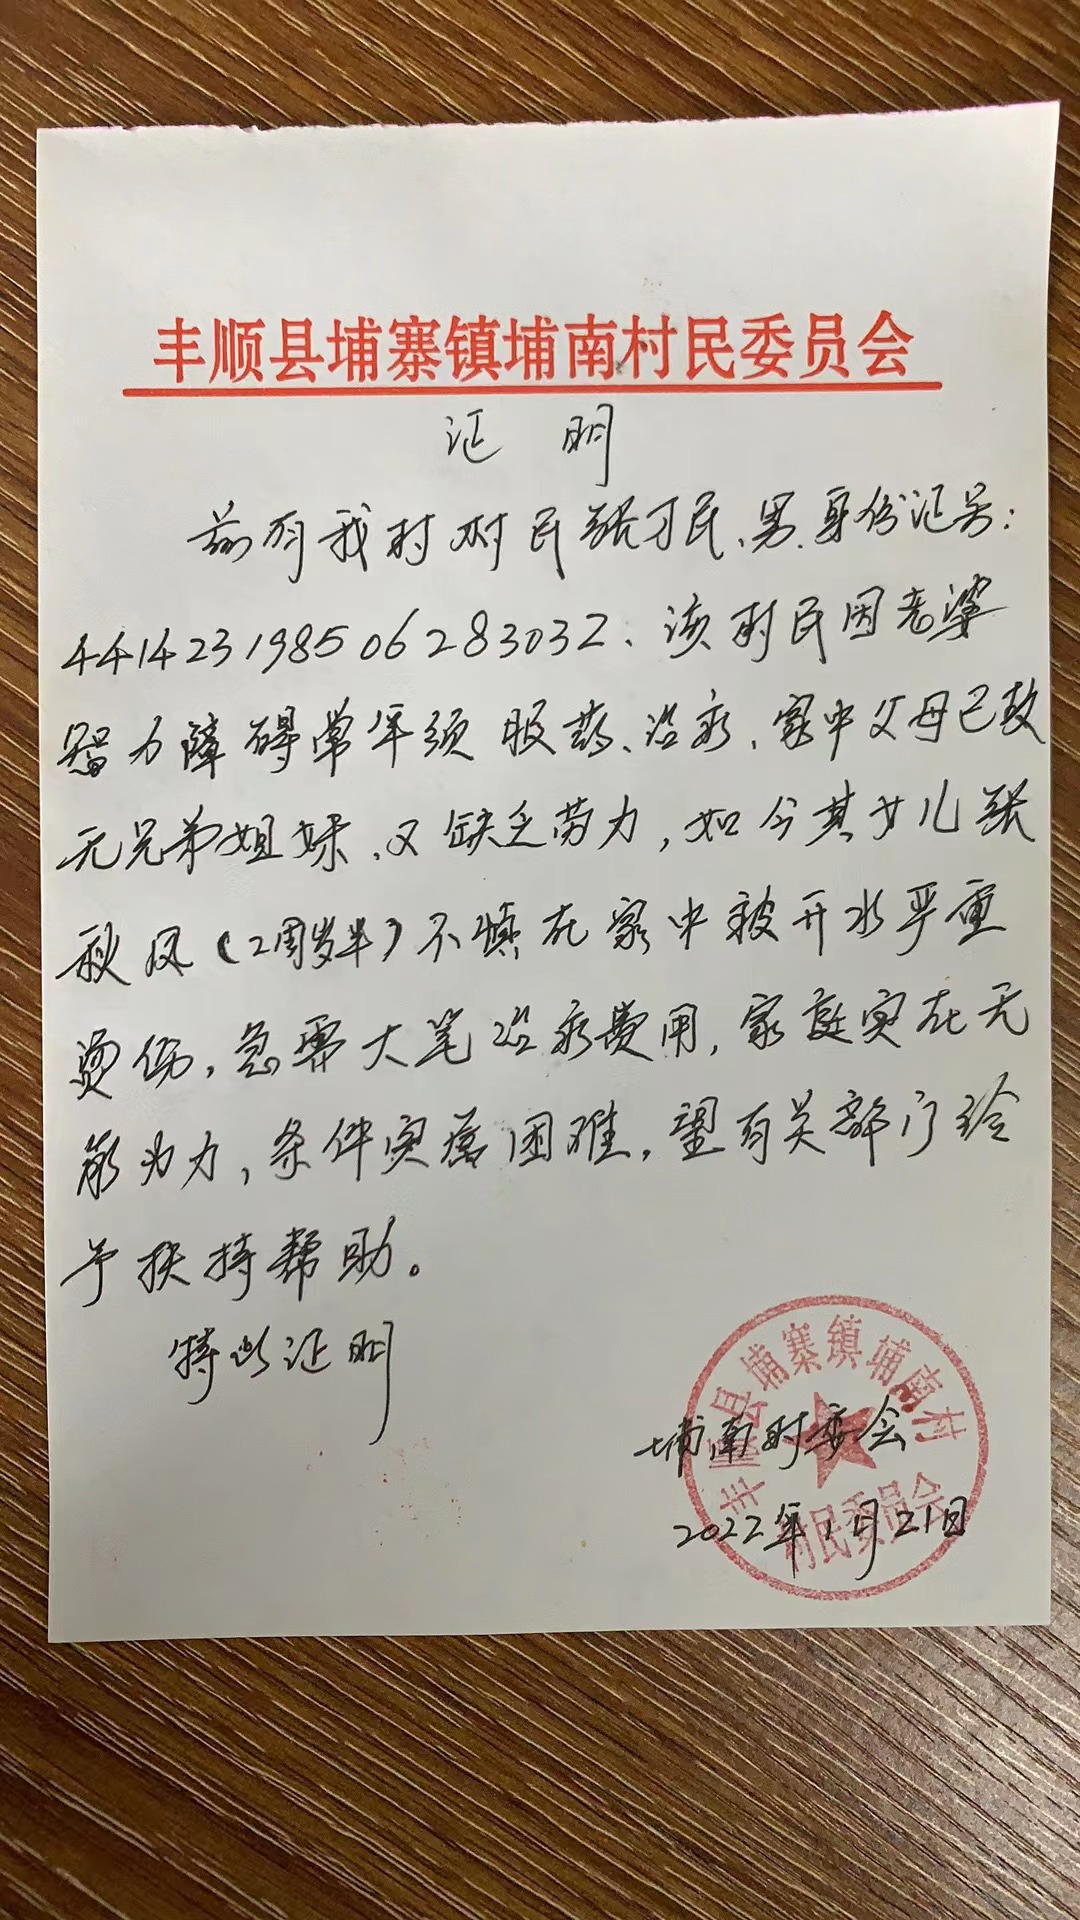 丰顺县埔寨镇埔南村民委员会
证 明
兹有我村村民张习民、男、身份证号：
441423198506283032、该村民因老婆
智力障碍常年须服药、治疗、家中父母已故
无兄弟姐妹、又缺乏劳力，如今其女儿张
秋凤（2周岁半）不慎在家中被开水严重
烫伤，急需大笔治疗费用，家庭实在无
能为力，条件实属困难，望有关部门给
予扶持帮助。
特此证明
埔南村委会
2022年1月21日
丰顺县埔寨镇埔南村
村民委员会